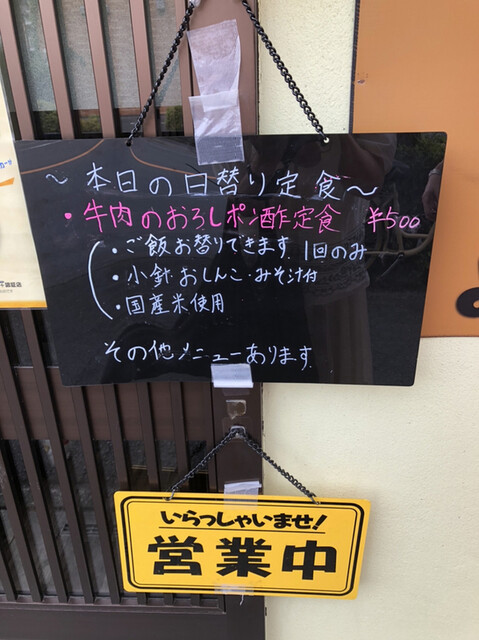 ～本日の日替り定食～
・牛肉のおろしポン酢定食 ¥500
・ご飯お替りできます 1回のみ
・小鉢・おしんこ・みそ汁付
・国産米使用
その他メニューあります
いらっしゃいませ!
営業中